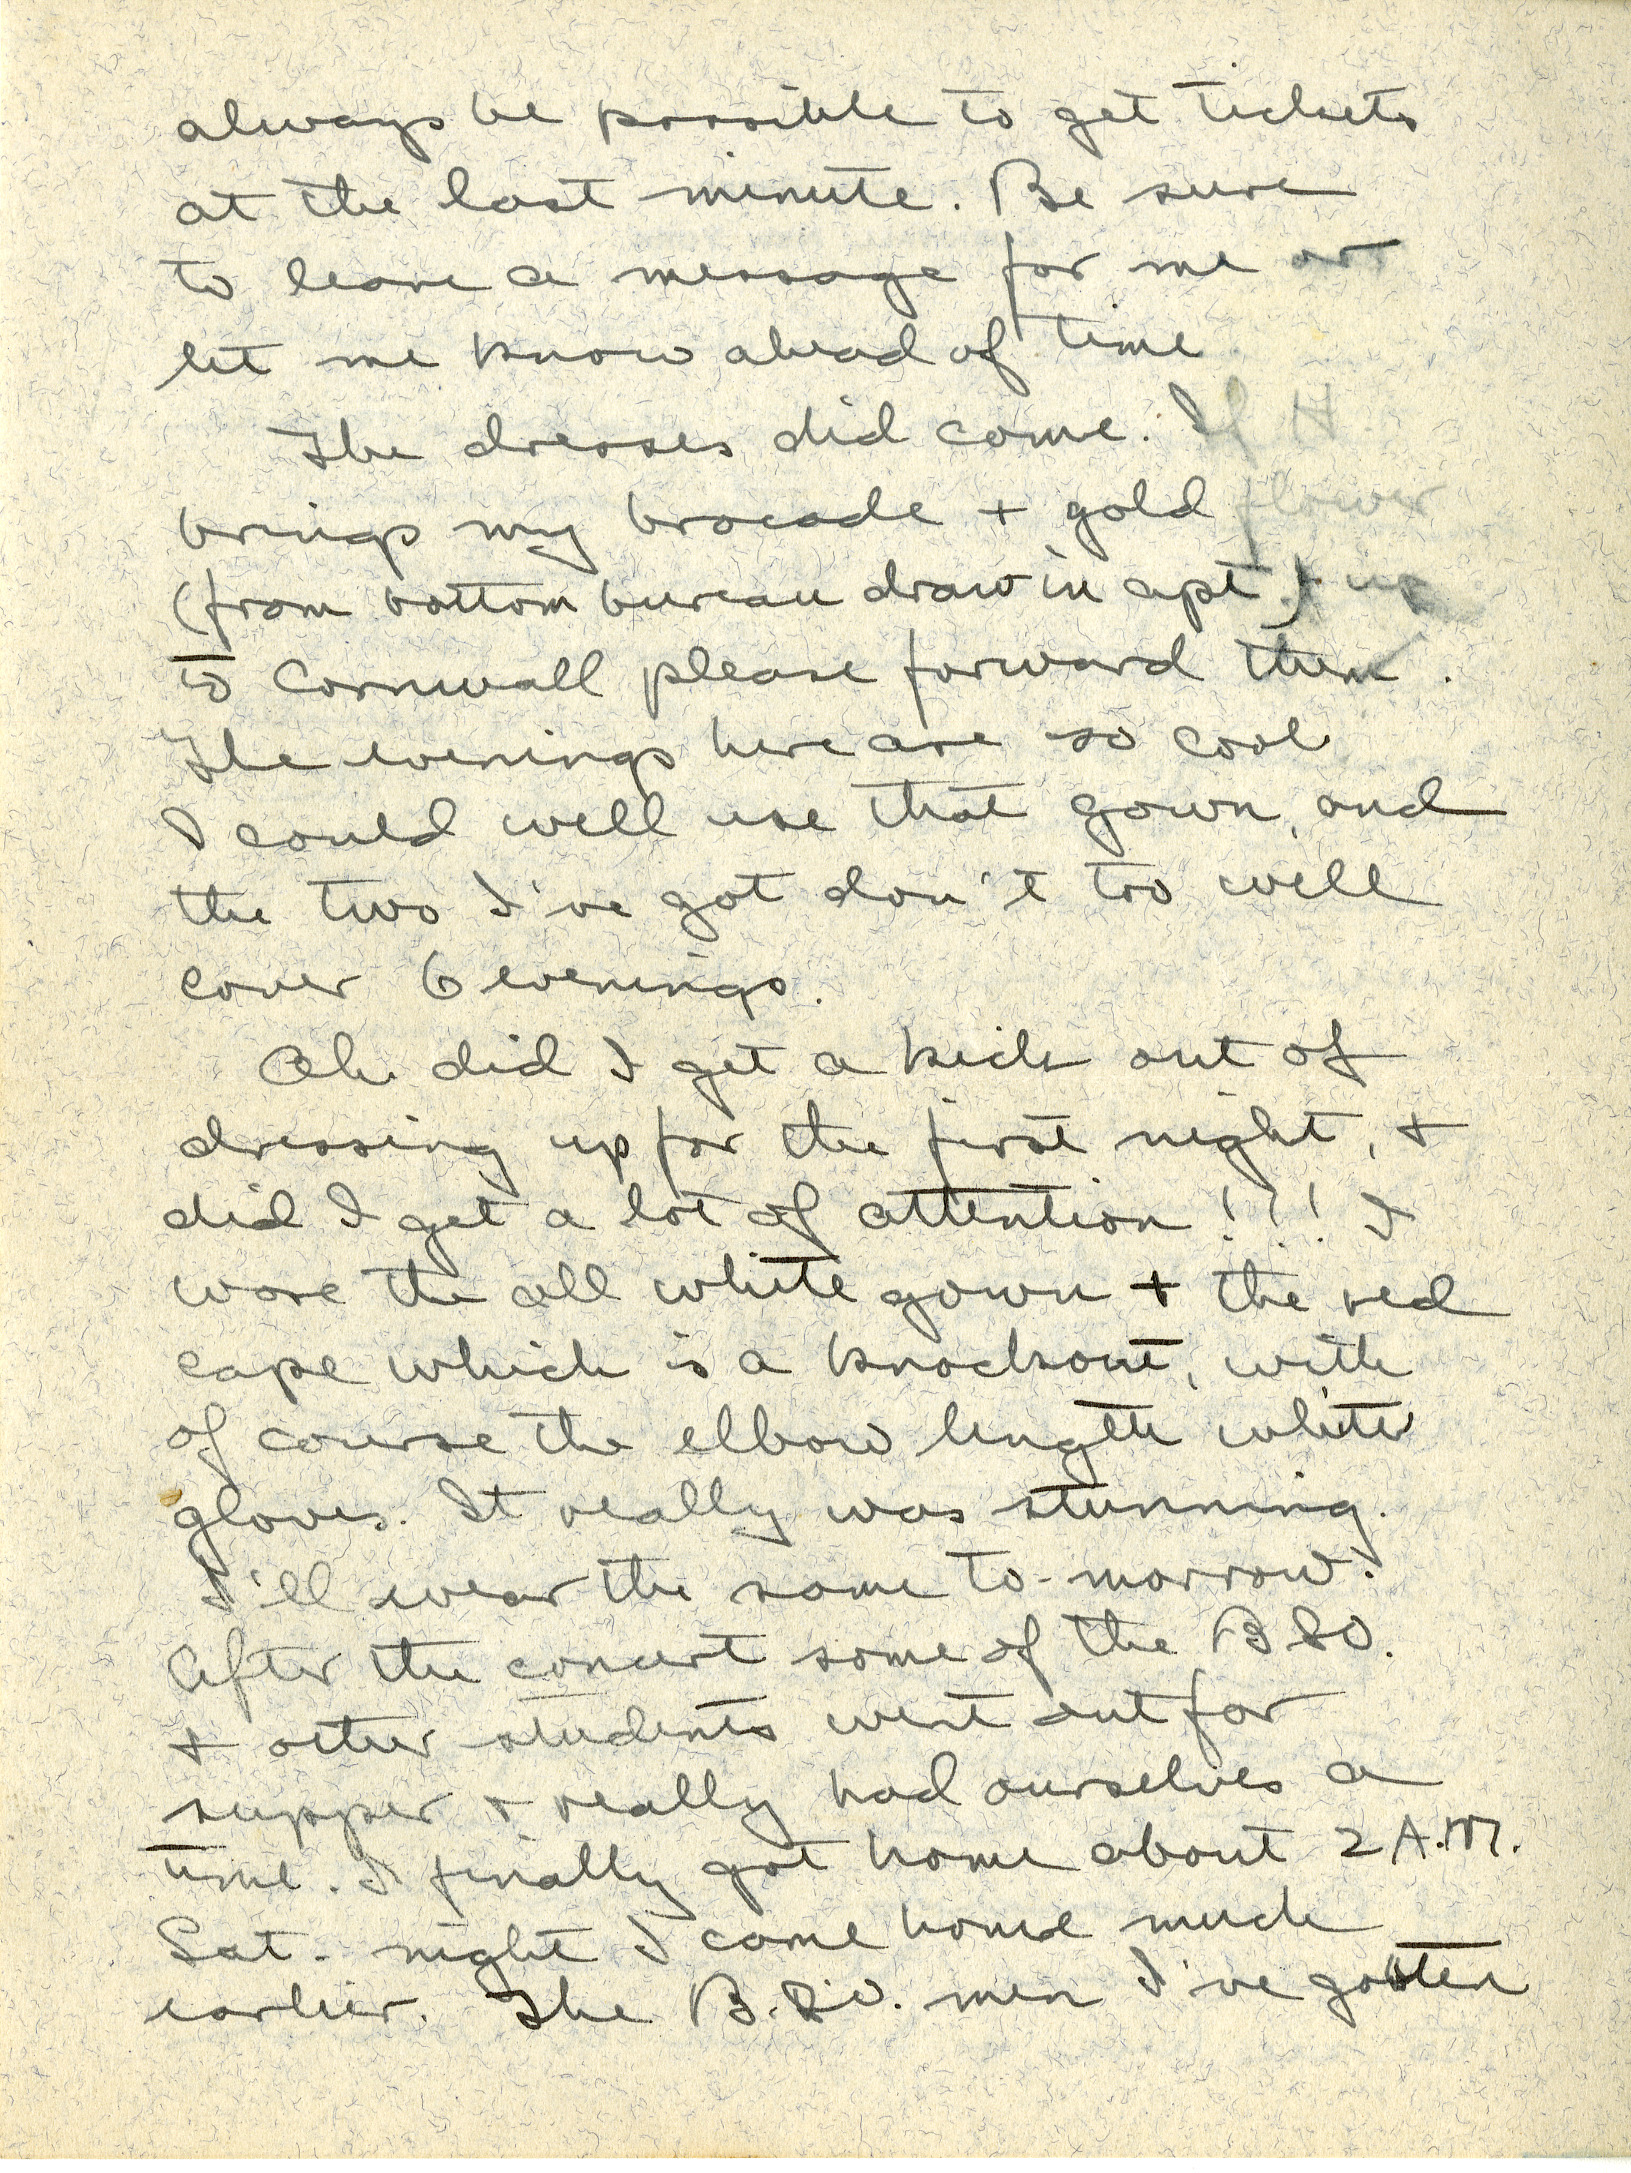 always be possible to get tickets
at the last minute. Be sure
to leave a message for me or
let me know ahead of time
The dresses did come. If H.
brings my brocade + gold flower
(from bottom bureau draw in apt.) + up
to Cornwall please forward them.
The evenings here are so cool
I could well use that gown, and
the two I've got don't too well
cover 6 evenings.
Oh did I get a kick out of
dressing up for the first night, +
did I get a lot of attention!!! I
wore the all white gown + the red
cape which is a knockout, with
of course the elbow length white
gloves. It really was stunning.
I'll wear the same to-morrow.
After the concert some of the BSO.
+ other students went out for
supper + really had ourselves a
time. I finally got home about 2 A.M.
Sat. night I came home much
earlier. The B.S.O. men I've gotten